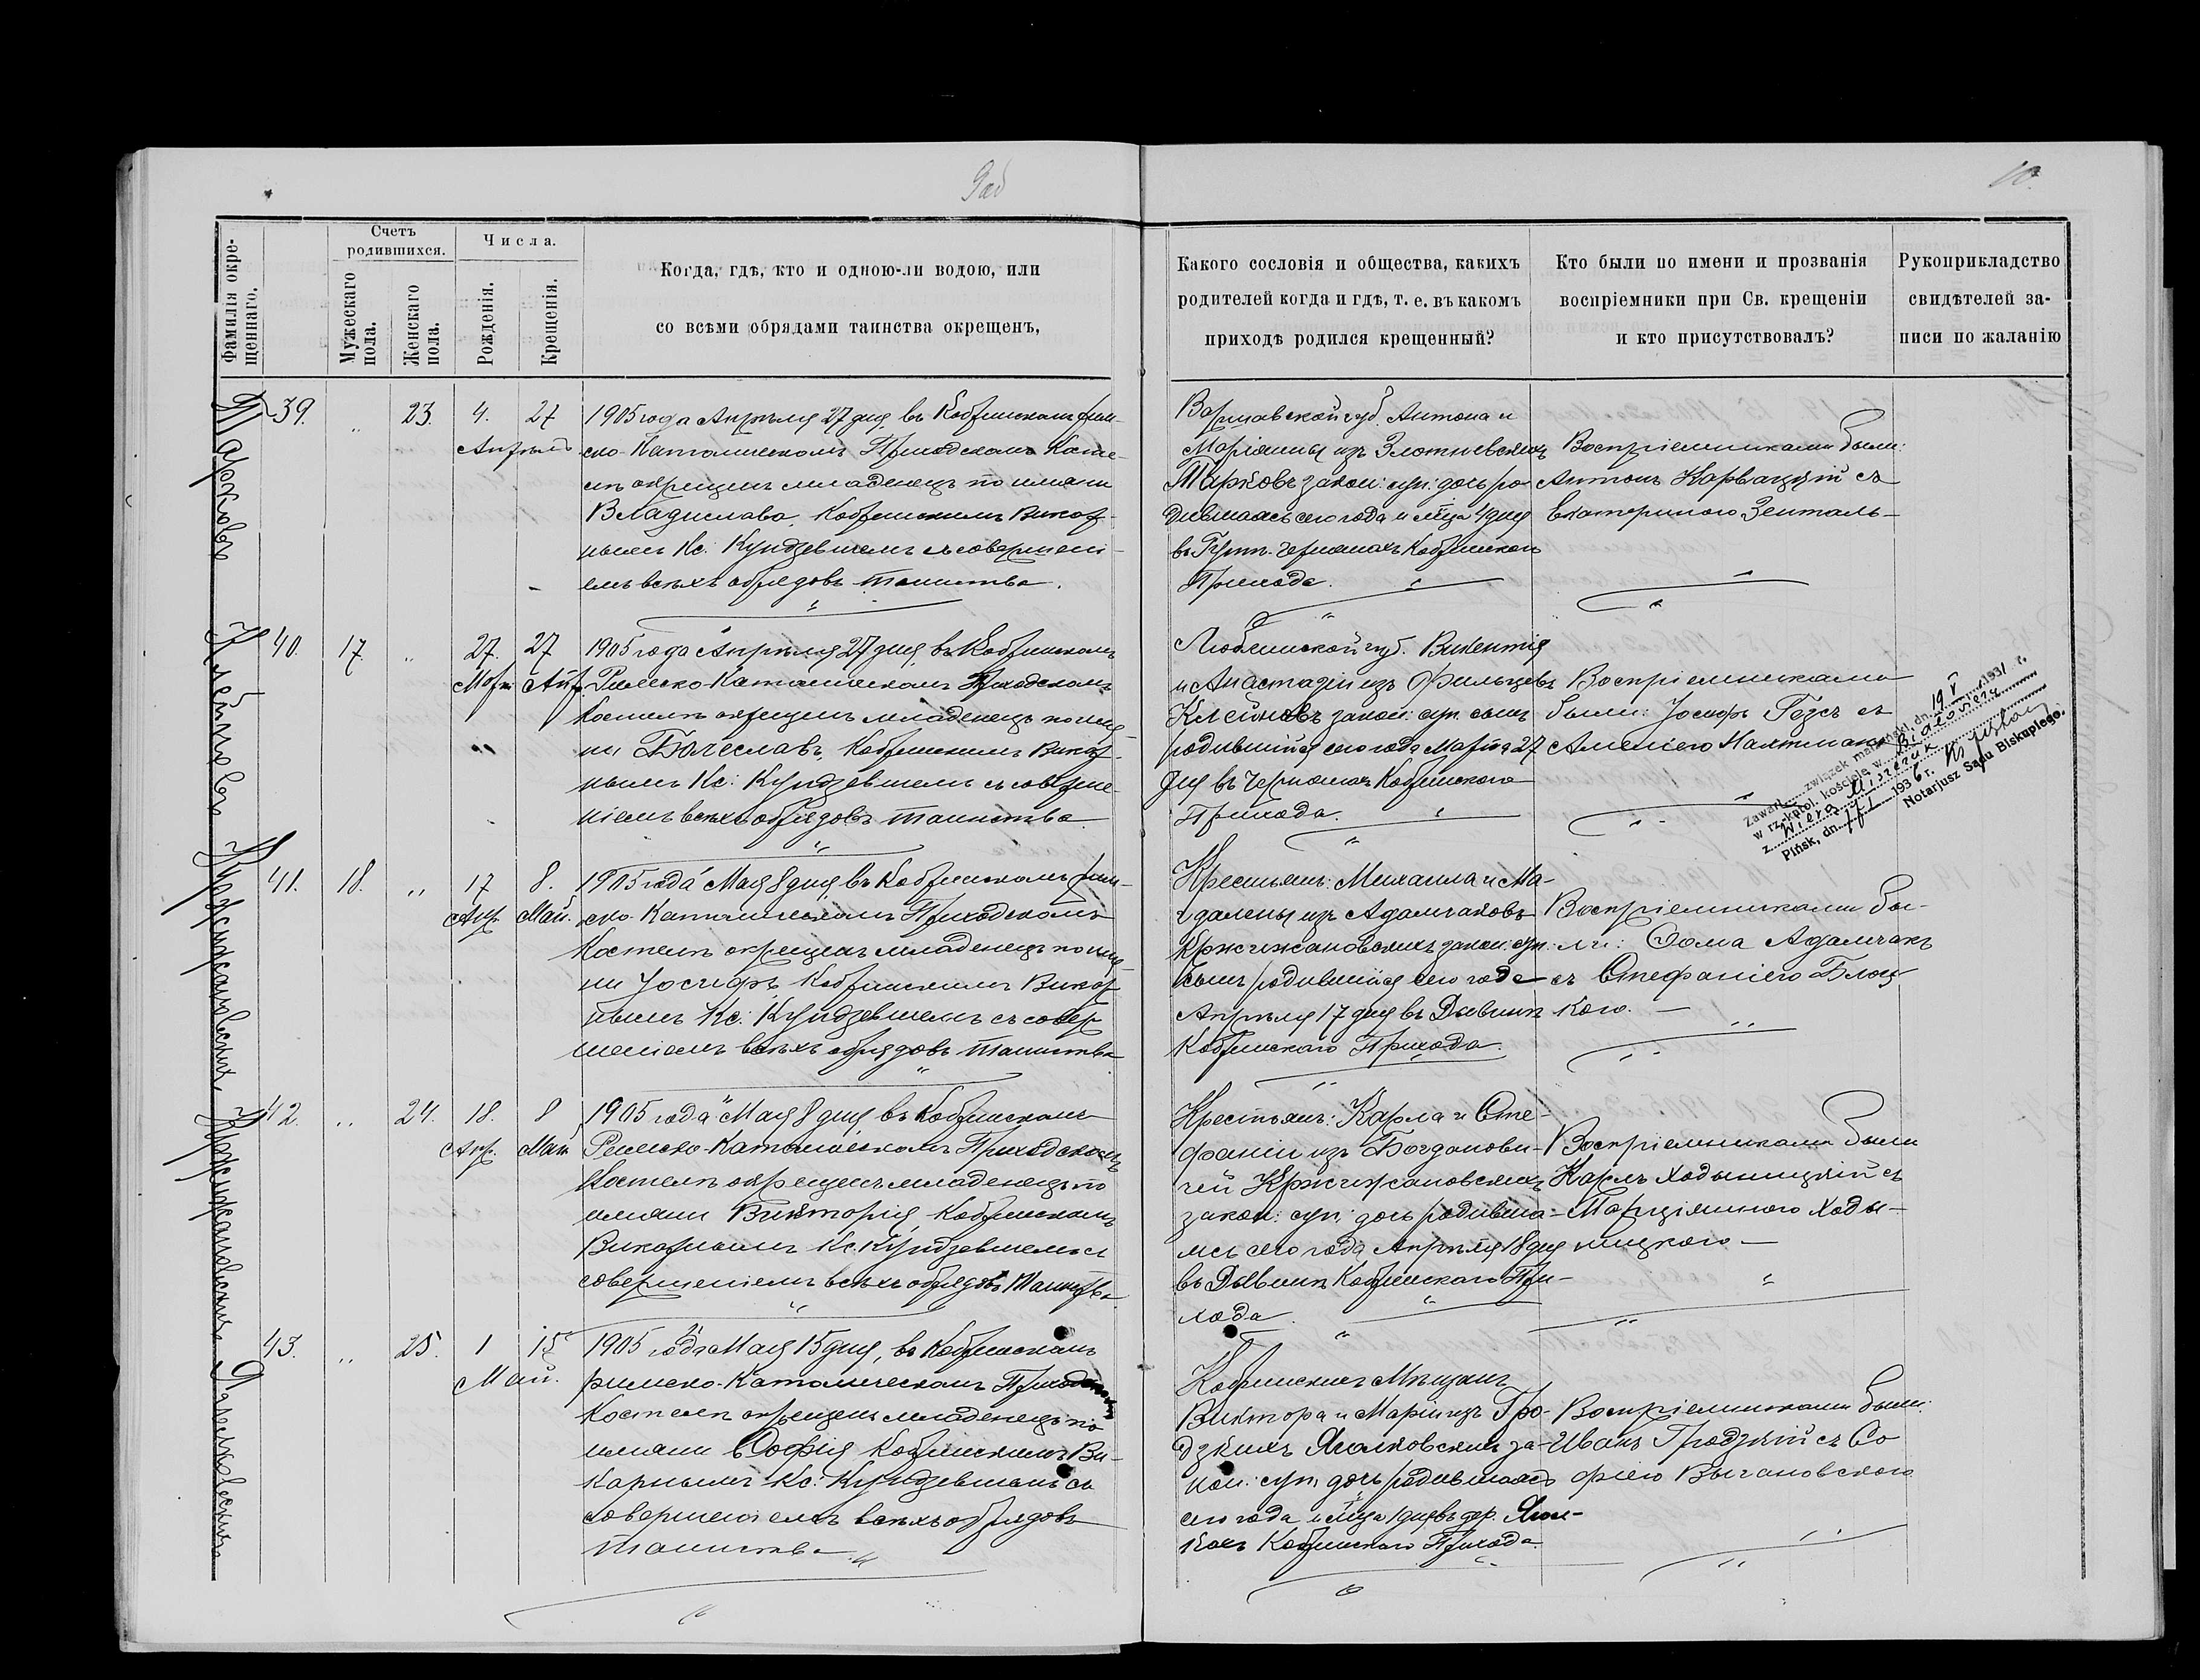 9 об
10.
Фамилія окре-
щеннаго.
Счетъ
родившихся.
Мужескаго
пола.
Женскаго
пола.
Числа.
Рожденія.
Крещенія.
Когда, гдѣ, кто и одною-ли водою, или
со всѣми обрядами таинства окрещенъ,
Какого сословія и общества, какихъ
родителей когда и гдѣ, т. е. въ какомъ
приходѣ родился крещенный?
Кто были по имени и прозванія
воспріемники при Св. крещеніи
и кто присутствовалъ?
Рукоприкладство
свидѣтелей за-
писи по жаланію
39.
„
23.
4.
27
Апрѣль
1905 года Апрѣля 27 дня, въ Кобринскомъ рим-
ско-Католическомъ Приходскомъ Косте-
лѣ окрещенъ младенецъ по имени
Владислава, Кобринскимъ Викар-
нымъ Кс: Кундзевичемъ съ совершені-
емъ всѣхъ обрядовъ таинства.
Варшавской губ. Антона и
Маріанны изъ Злотневскихъ
Тарковъ закон: суп: дочь ро-
дившаясь сего года и м̃ца 4 дня
въ Гутт. Черняхахъ Кобринскаго
Прихода.
Воспріемниками были:
Антонъ Карвацкій съ
Екатериною Зенталь-
40.
17.
„
27.
27
Март
Апр.
1905 года Апрѣля 27 дня, въ Кобринскомъ
Римско-Католическомъ Приходскомъ
Костелѣ окрещенъ младенецъ по име-
ни Болеславъ, Кобринскимъ Викар-
нымъ Кс: Кундзевичемъ съ соверше-
ніемъ всѣхъ обрядовъ таинства
Люблинской губ. Викентія
и Анастазіи изъ Фильцевъ
закон: суп. сынъ
родившійся сего года Марта 27
дня въ Кобринскаго
Прихода.
Воспріемниками
были: Іосифъ съ
Амеліею
Zawarł związek małżeński, dn. 19 V 1931 r.
w rz.-katol. kościele w
z
Pińsk, dn. 1936 r.
Notarjusz Sądu Biskupiego.
41.
18.
„
17
8.
Апр.
Май.
1905 года Мая 8 дня въ Кобринскомъ рим-
ско-Католическомъ Приходскомъ
Костелѣ окрещенъ младенецъ по име-
ни Іосифъ, Кобринскимъ Викар-
нымъ Кс: Кундзевичемъ съ совер-
шеніемъ всѣхъ обрядовъ таинства
Крестьянъ: Михаила и Ма-
гдалены изъ Адамчаковъ
Кржижановскихъ закон: суп:
сынъ родившійся сего года
Апрѣля 17 дня въ Дывинѣ
Кобринскаго Прихода.
Воспріемниками бы-
ли: Ѳома Адамчакъ
съ Стефаніею Блоц-
кою.
42.
„
24.
18.
8
Апр.
Май
1905 года Мая 8 дня, въ Кобринскомъ
Римско-Католическомъ Приходскомъ
Костелѣ окрещенъ младенецъ по
имени Викторія, Кобринскимъ
Викарнымъ Кс. Кундзевичемъ съ
совершеніемъ всѣхъ обрядовъ таинства
Крестьянъ: Карла и Сте-
фаніи изъ Богданови-
чей Кржижановскихъ
закон: суп: дочь родивша-
яся сего года Апрѣля 18 дня
въ Дывинѣ Кобринскаго При-
хода.
Воспріемниками были
Карлъ Ходыницкій съ
Марціянною Ходы-
ницкою
43.
„
25.
1
15
Май.
1905 года Мая 15 дня, въ Кобринскомъ
римско-Католическомъ Приходскомъ
Костелѣ окрещенъ младенецъ по
имени Софія Кобринскимъ Ви-
карнымъ Кс: Кундзевичемъ съ
совершеніемъ всѣхъ обрядовъ
таинства
Кобринскихъ Мѣщанъ
Виктора и Маріи изъ Гро-
дзкихъ за-
кон: суп: дочь родившаяся
сего года и м̃ца 1 дня въ дер.
Кобринскаго Прихода.
Воспріемниками были:
Иванъ Гродзкій съ Со
фіею Вычановскою
Тарковъ
Кржижановскихъ
Кржижановскихъ